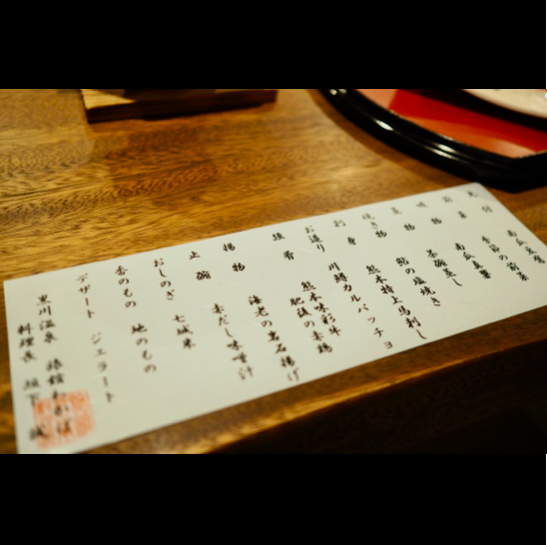 先付 南瓜豆腐
前菜 季節の前菜
吸物 南瓜真薯
蒸物 茶碗蒸し
焼き物 鮎の塩焼き
刺身 熊本特上馬刺し
お造り 川鱒カルパッチョ
強肴 熊本味彩牛
肥後の赤鶏
揚物 海老の岩石揚げ
止椀 赤だし味噌汁
おしのぎ 七城米
香のもの 地のもの
デザート ジェラート
黒川温泉 旅館わかば
料理長 坂下